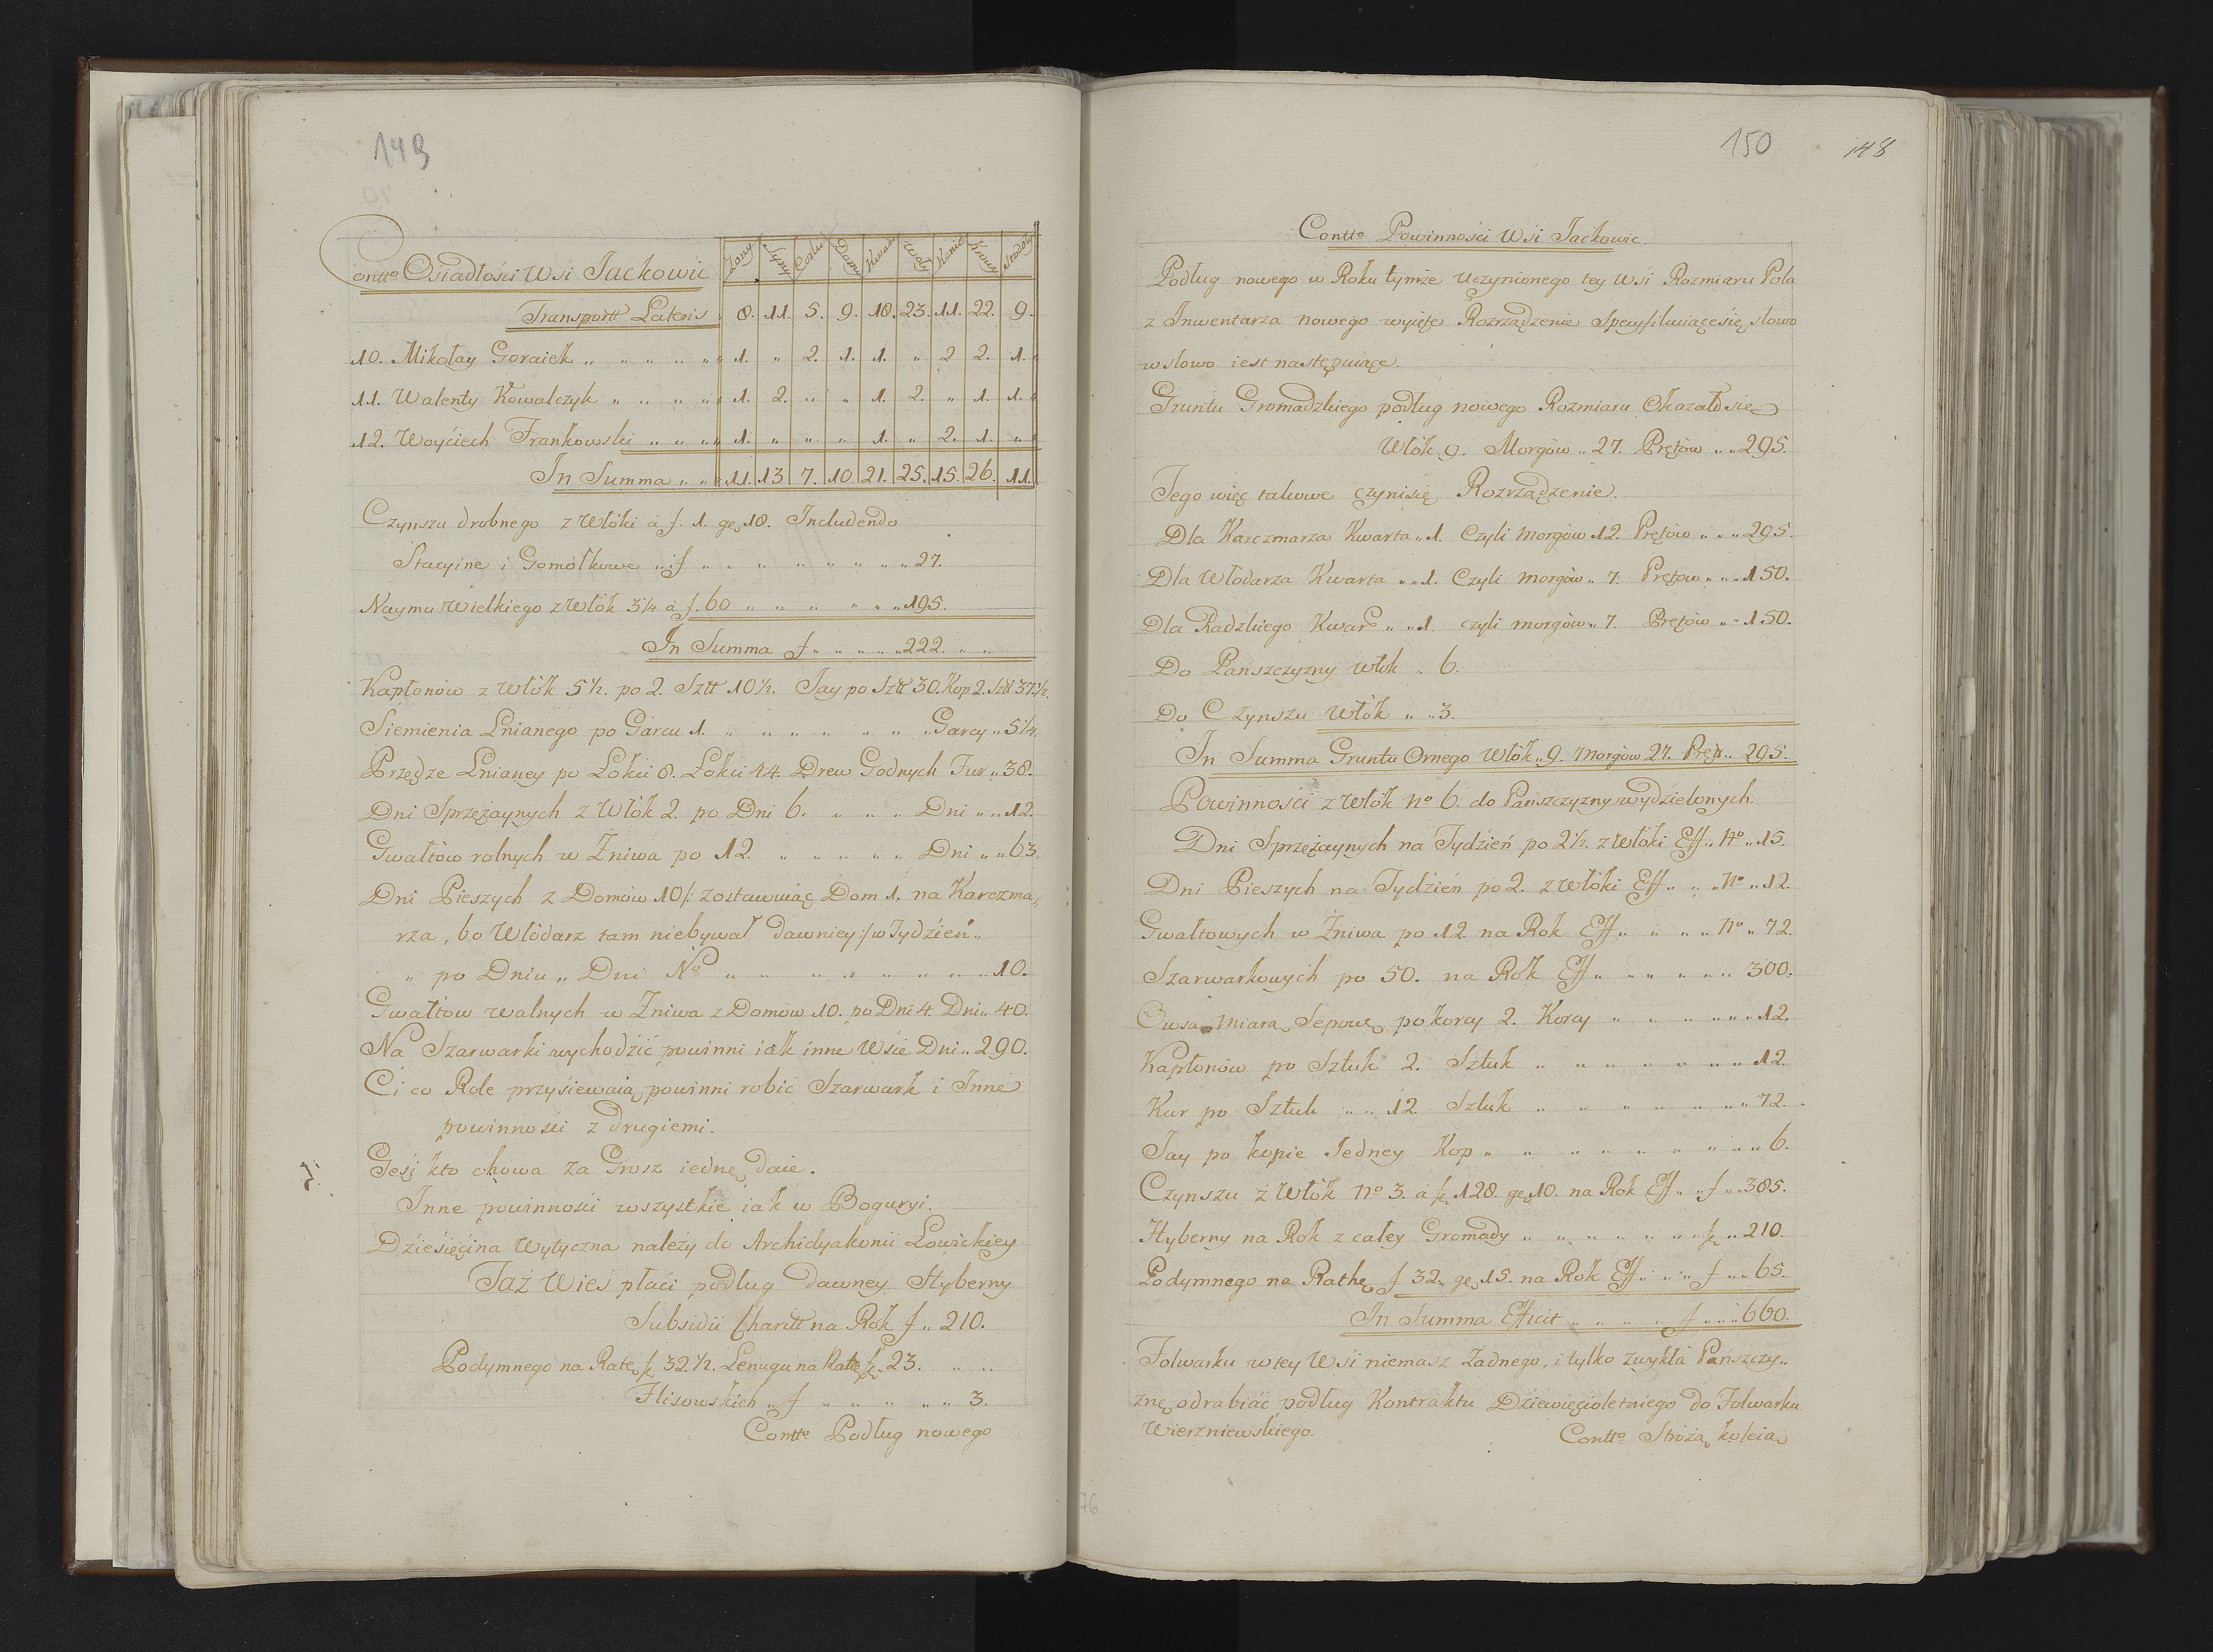 149
Contto Osiadłości Wsi Jackowic Żony Syny Córki Domy Kwar Woły Konie Krowy Stodoły
Transportt Lateris 8. 11. 5. 9. 18. 23. 11. 22. 9.
10. Mikołay Goraiek „ „ „ „ „ 1. „ 2. 1. 1. „ 2 2. 1.
11. Walenty Kowalczyk „ „ „ „ 1. 2. „ „ 1. 2. „ 1. 1.
12. Woyciech Frankowski „ „ „ 1. „ „ „ 1. „ 2. 1. „
In Summa „ „ 11. 13 7. 10. 21. 25. 15. 26. 11.
Czynszu drobnego z Włóki á f. 1. gę 18. Includendo
Stacyine i Gomółkowe „ f „ „ „ „ „ „ „ „ 27.
Naymu Wielkiego z Włók 3¼ á f. 60 „ „ „ „ „ „ 195.
In Summa f „ „ „ „ „ 222. „ „
Kapłonów z Włók 5½. po 2. Sztt 10½. Jay po Sztt 30. Kop 2. Sztt 37½.
Siemienia Lnianego po Garcu 1. „ „ „ „ „ „ „ Garcy „ 5¼.
Przędze Lnianey po Łokci 8. Łokci 44. Drew Godnych Fur „ 38.
Dni Sprzężaynych z Włók 2. po Dni 6. „ „ „ Dni „ „ 12.
Gwałtów rolnych w Żniwa po 12. „ „ „ „ „ Dni „ „ 63.
Dni Pieszych z Domów 10/: zostawuiąc Dom 1. na Karczma„
rza, bo Włódarz tam niebywał dawniey :/ w Tydzień „
„ po Dniu „ Dni No „ „ „ „ „ „ „ „ „ 10.
Gwałtów walnych w Żniwa z Domów 10. po Dni 4 Dni „ 40.
Na Szarwarki wychodzić powinni iak inne Wsie Dni „ 290.
Ci co Role przysiewaią, powinni robić Szarwark i Inne
powinności z drugiemi.
Gęsi kto chowa za Grosz iednę daie.
Inne powinności wszystkie iak w Boguryi.
Dziesięcina Wytyczna należy do Archidyakonii Łowickiey
Taż Wieś płaci podług dawney Hyberny
Subsidii Charitt na Rok f „ 210.
Podymnego na Ratę f 32.½. Lenugu na Ratę f. 23. „ „
Flisowskich „ f „ „ „ „ „ 3.
Contto Podług nowego
150 148
Contto Powinności Wsi Jackowic.
Podług nowego w Roku tymże Uczynionego tey Wsi Rozmiaru Pola
z Inwentarza nowego wyięte Rozrządzenie Specyfikuiące się słowo
w słowo iest następuiące.
Gruntu Gromadzkiego podług nowego Rozmiaru Okazało się
Włók 9. Morgów „ 27. Prętów „ „ 295.
Tego więc takowe czyni się Rozrządzenie.
Dla Karczmarza Kwarta „ 1. Czyli Morgów 12. Prętów „ „ „ 295.
Dla Włodarza Kwarta „ „ 1. Czyli morgów „ 7. Prętow „ „ „ 150.
Dla Radzkiego Kwart „ „ 1. czyli morgów „ 7. Prętów „ „ 150.
Do Pańszczyzny włok „ 6.
Do Czynszu Włók „ „ 3.
In Summa Gruntu Ornego Włók „ 9. Morgów 27. Pręt „ 295.
Powinności z Włók No 6. do Pańszczyzny wydzielonych.
Dni Sprzężaynych na Tydzień po 2½. z Włóki Eff „ No „ 15.
Dni Pieszych na Tydzień po 2. z Włóki Eff „ „ „ No „ 12.
Gwałtowych w Żniwa po 12. na Rok Eff „ „ „ „ No „ 72.
Szarwarkowych po 50. na Rok Eff „ „ „ „ „ „ 300.
Owsa Miarą Sepową po korcy 2. Korcy „ „ „ „ „ „ 12.
Kapłonów po Sztuk 2. Sztuk „ „ „ „ „ „ „ 12.
Kur po Sztuk „ „ 12 Sztuk „ „ „ „ „ „ „ 72.
Jay po kopie Jedney Kop „ „ „ „ „ „ „ „ 6.
Czynszu z Włók No 3. á f 128. gę 10. na Rok Eff „ „ f „ „ 385.
Hyberny na Rok z całey Gromady „ „ „ „ „ „ „ f „ 210.
Podymnego na Rathę f 32. gę 15. na Rok Eff „ „ „ f „ „ 65.
In Summa Efficit „ „ „ „ f „ „ „ 660.
Folwarku w tey Wsi niemasz Żadnego, i tylko zwykła Pańszczy„
znę odrabiać podług Kontraktu Dziewięcioletniego do Folwarku
Wierzniewskiego.
Contto Stróża koleią
76